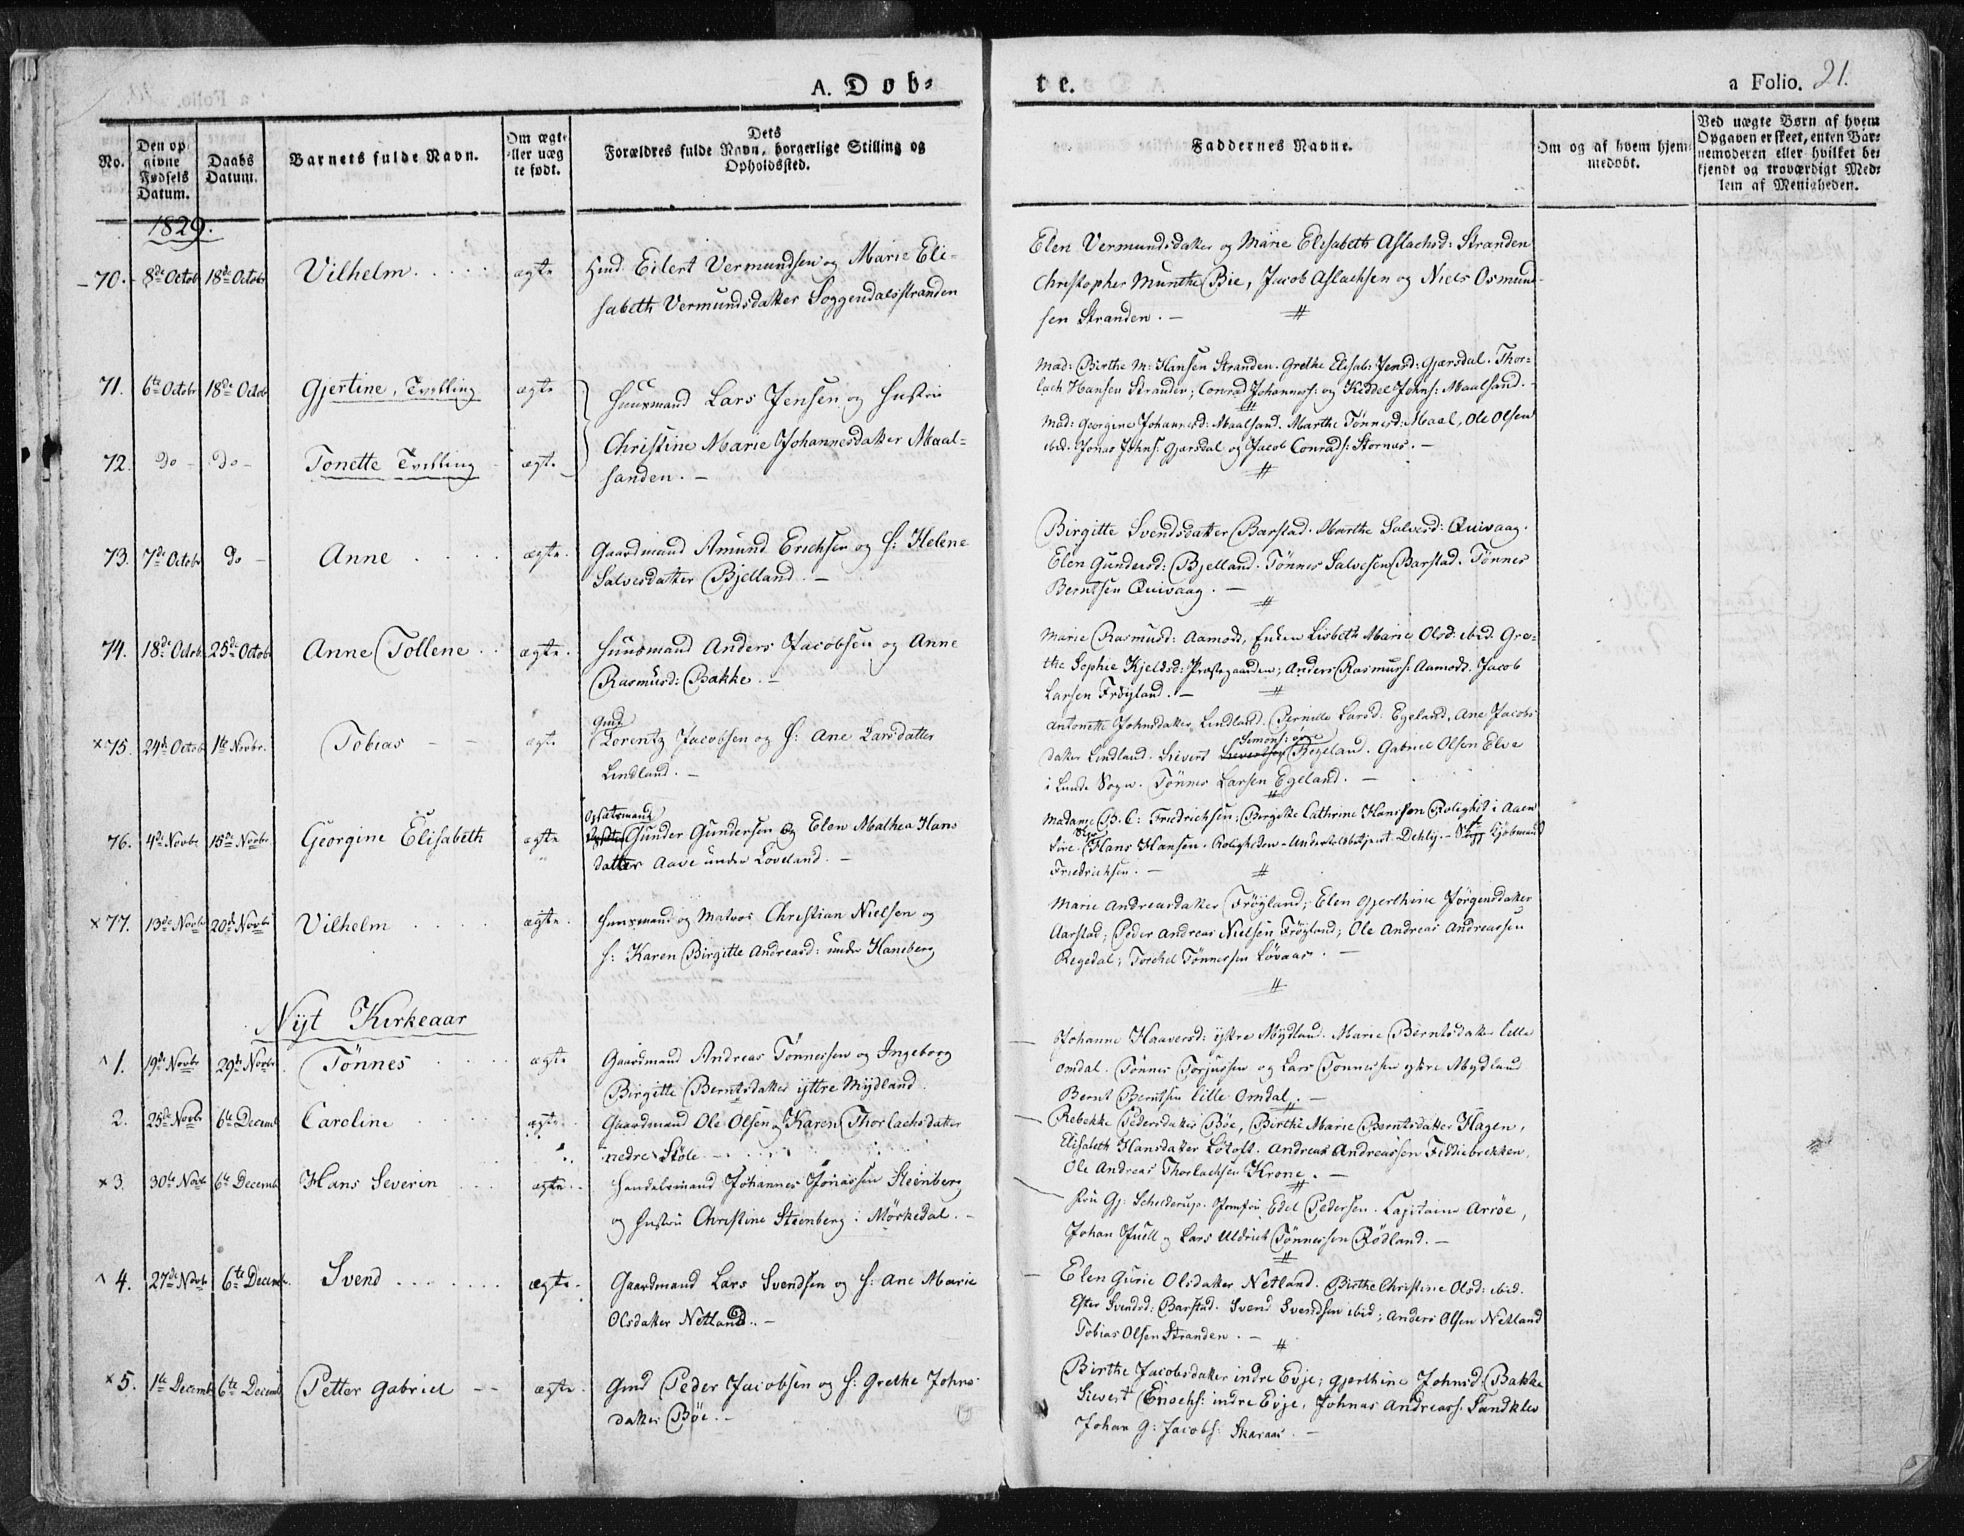 A. Dob-
te.
a Folio. 21.
No.
Den opgivne Fødsels Datum.
Daabs Datum.
Barnets fulde Navn.
Om ægte eller uægte født.
Dets Forældres fulde Navn, borgerlige Stilling og Opholdssted.
Faddernes Navne.
Om og af hvem hjemmedøbt.
Ved uægte Børn af hvem Opgaven er skeet, enten Barnemoderen eller hvilket bekjendt og troværdigt Medlem af Menigheden.
1829.
70. 8de Octob 18de Octobr Vilhelm ægte Hmd. Eilert Vermundsen og Marie Eli-
sabeth Vermundsdatter Soggendalsstranden
Elen Vermundsdatter og Marie Elisabeth Aslachsd: Stranden
Christopher Munthe Bie, Jacob Aslachsen og Niels Osmund-
sen Stranden. —
71. 6te Octobr 18de Octob Gjertine, Tvilling ægte Huusmand Lars Jensen og Hustru
72. do do Tonette Tvilling ægte Christine Marie Johannesdatter Maal-
sanden. —
Mad: Birthe M: Hansen Stranden. Grethe Elisab: Jensd: Gjersdal. Thor-
lach Hansen Stranden; Conrad Johanness: og Keddel Johns: Maalsand.
Mad: Georgine Johannesd: Maalsand. Marthe Tønnesd: Maal, Ole Olsen
ibid. Jonas Johns: Gjersdal og Jacob Conrads: Stornes. —
73. 7de Octobr do Anne ægte. Gaardmand Amund Erichsen og H: Helene
Salvesdatter Bjelland. —
Birgitte Svendsdatter Barstad. Marthe Salvesd: Quivaag.
Elen Gundersd: Bjelland. Tønnes Salvesen Barstad. Tønnes
Berntsen Quivaag. —
74. 18de Octob 25de Octob Anne Tollene ægte. Huusmand Anders Jacobsen og Anne
Rasmusd: Bakke. —
Marie Rasmusd: Aamodt, Enken Lisbeth Marie Olsd: ibid. Gre-
the Sophie Kjeldsd: Præstegaarden; Anders Rasmuss: Aamodt. Jacob
Larsen Frøyland. —
×75. 24de Octob 1te Novbr. Tobias ægte Gmd Lorentz Jacobsen og H: Ane Larsdatter
Lindland. —
Antonette Johnsdatter Lindland. Pernille Larsd. Egeland, Ane Jacobs-
datter Lindland. Sievert Sievertsen Simons: øvre Regeland. Gabriel Olsen Elve
i Lunde Sogn. Tønnes Larsen Egeland. —
76. 4de Novbr 15de Novbr Georgine Elisabeth ægte Opsatsmand Gunder Gundersen og Elen Mathea Hans
datter Aave under Loveland. —
Madame B. C: Friedrichsen; Birgitte Cathrine Hansen Rolighed i Aaen
Sire. Hans Hansen. Roligheden. Kjøbmand
Friedrichsen. —
×77. 13de Novbr 20de Novbr Vilhelm ægte. Huusmand og Matros Christian Nielsen og
H: Karen Birgitte Andreasd: under Haneberg
Marie Andreasdatter Frøyland; Elen Gjerthine Jørgensdatter
Aarstad; Peder Andreas Nielsen Frøyland; Ole Andreas Andreassen
Regedal; Torchel Tønnessen Løvaas. —
Nyt Kirkeaar
1. 19de Novbr 29de Novbr. Tønnes ægte Gaardmand Andreas Tønnessen og Ingeborg
Birgitte Berntsdatter yttre Mydland.
Johanne Haaversd: ystre Mydland. Marie Berntsdatter lille
Omdal. Tønnes Torjussen og Lars Tønnessen ystre Mydland
Bernt Berntsen Lille Omdal. —
2. 25de Novbr 6te Decemb Caroline ægte Gaardmand Ole Olsen og Karen Thorlachsdatter
nedre Støle
Rebekke Pedersdatter Bøe, Birthe Marie Berntsdatter Hagen,
Elisabeth Hansdatter Løtoft. Andreas Andreassen Fiddiebrekken,
Ole Andreas Thorlachsen Krone. —
×3. 30te Novbr 6te Decemb Hans Severin ægte. Handelsmand Johannes Jonassen Steenberg
og Hustru Christine Steenberg i Mørkedal. —
Fru Gj: Schelderup. Jomfru Edel Pedersen. Capitaine Arrøe,
Johan Juell og Lars Uldrick Tønnessen Rødland. —
4. 27de Novbr 6te Decemb. Svend ægte. Gaardmand Lars Svendsen og H: Ane Marie
Olsdatter Netland. —
Elen Gurie Olsdatter Netland. Birthe Christine Olsd: ibid.
Ester Svendsd: Barstad. Svend Svendsen ibid; Anders Olsen Netland
Tobias Olsen Stranden. —
×5. 1te Decemb 6te Decemb Petter Gabriel ægte. Gmd Peder Jacobsen og H: Grethe Johns-
datter Bøe. —
Birthe Jacobsdatter indre Evje; Gjerthine Johnsd: Bakke
Sievert Enochs: indre Evje, Johnas Andreass: Sandklev
Johan G: Jacobs: Skaraas. —